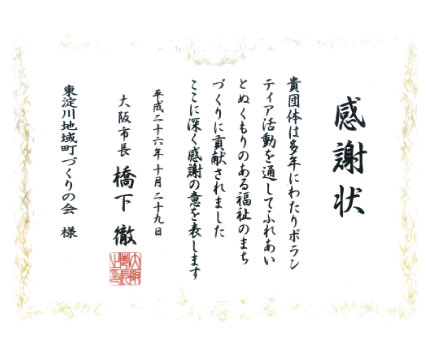 感謝状
貴団体は多年にわたりボラン
ティア活動を通してふれあい
とぬくもりのある福祉のまち
づくりに貢献されました
ここに深く感謝の意を表します
平成二十六年十月二十九日
大阪市長 橋下 徹
東淀川地域町づくりの会 様